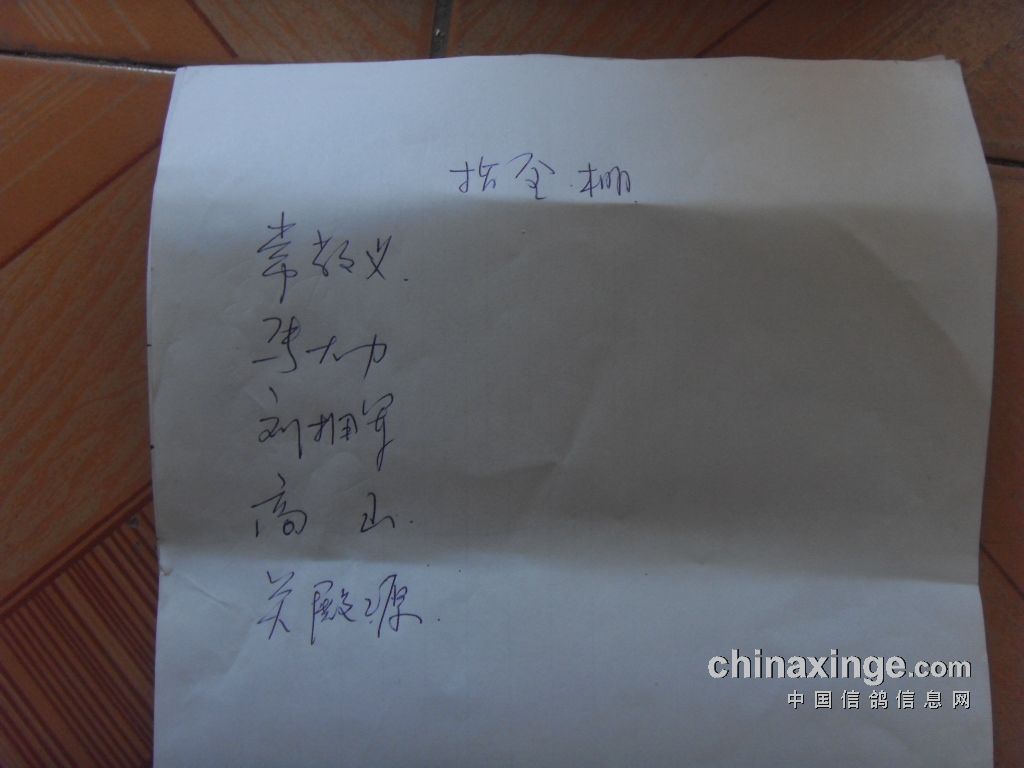 抬全棚
常敖义.
马大力
刘拥军
高 山.
关殿源.
chinaxinge.com
中国信鸽信息网